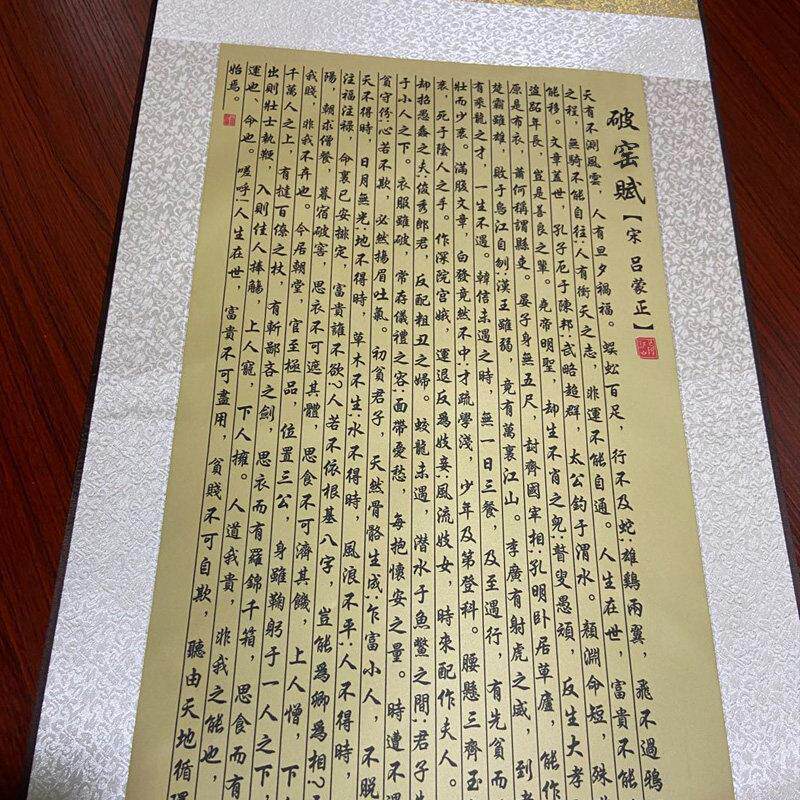 破窑賦【宋 呂蒙正】
天有不測風雲,人有旦夕禍福。蜈蚣百足,行不及蛇;雄鷄兩翼,飛不過鴉
之程,無騎不能自往;人有衝天之志,非運不能自通。人生在世,富貴不能
能移。文章蓋世,孔子厄于陳邦;武略超群,太公釣于渭水。顏淵命短,殊
盜跖年長,豈是善良之輩。堯帝明聖,却生不肖之兒;瞽叟愚頑,反生大孝
原是布衣,蕭何稱謂縣吏。晏子身無五尺,封齊國宰相;孔明卧居草廬,能作
楚霸雖雄,敗于烏江自刎;漢王雖弱,竟有萬裏江山。李廣有射虎之威,到老
有乘龍之才,一生不遇。韓信未遇之時,無一日三餐,及至遇行,有先貧而
壯而少衰。滿腹文章,白發竟然不中;才疏學淺,少年及第登科。腰懸三齊玉
衰,死于陰人之手。作深院宮娥,運退反爲妓妾;風流妓女,時來配作夫人。
却招愚蠢之夫;俊秀郎君,反配粗丑之婦。蛟龍未遇,潛水于魚鱉之間;君子
于小人之下。衣服雖破,常存儀禮之容;面帶憂愁,每抱懷安之量。時遭不遇
貧守份;心若不欺,必然揚眉吐氣。初貧君子,天然骨骼生成;乍富小人,不脫
天不得時,日月無光;地不得時,草木不生;水不得時,風浪不平;人不得時,
注福注祿,命裏已安排定,富貴誰不欲?人若不依根基八字,豈能爲卿爲相?
陽,朝求僧餐,暮宿破窑,思衣不可遮其體,思食不可濟其饑,上人憎,下
我賤,非我不弃也。今居朝堂,官至極品,位置三公,身雖鞠躬于一人之下,
千萬人之上,有撻百僚之杖,有斬鄙吝之劍,思衣而有羅錦千箱,思食而有
出則壯士執鞭,入則佳人捧觴,上人寵,下人擁。人道我貴,非我之能也,
運也、命也。嗟呼!人生在世,富貴不可盡用,貧賤不可自欺,聽由天地循環
始焉。